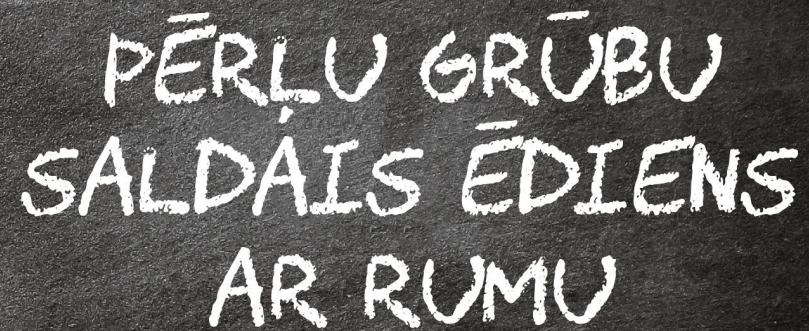 PĒRĻU GRŪBU
SALDAIS ĒDIENS
AR RUMU